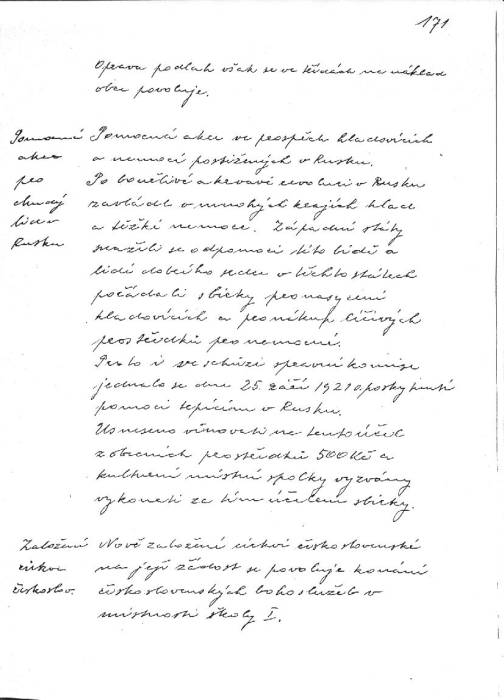 171
Oprava podlah však se ve třídách na náklad
obce povoluje.
Pomocná
akce
pro
chudý
lid v
Rusku
Pomocná akce ve prospěch hladovících
a nemocí postižených v Rusku.
Po bouřlivé a krvavé revoluci v Rusku
zavládl v mnohých krajích hlad
a těžké nemoce. Západní státy
snažili se odpomoci této bídě a
lidé dobrého srdce v těchto státech
pořádali sbírky pro nasycení
hladovících a pro nákup léčivých
prostředků pro nemocné.
Proto i ve schůzi správní komise
jednalo se dne 25. září 1921 o poskytnutí
pomoci trpícím v Rusku.
Usneseno věnovati na tento účel
z obecních prostředků 500 Kč a
kulturní místní spolky vyzvány
vykonati za tím účelem sbírky.
Založení
církve
českoslov.
Nově založení církvi československé
na její žádost se povoluje konání
československých bohoslužeb v
místnosti školy I.